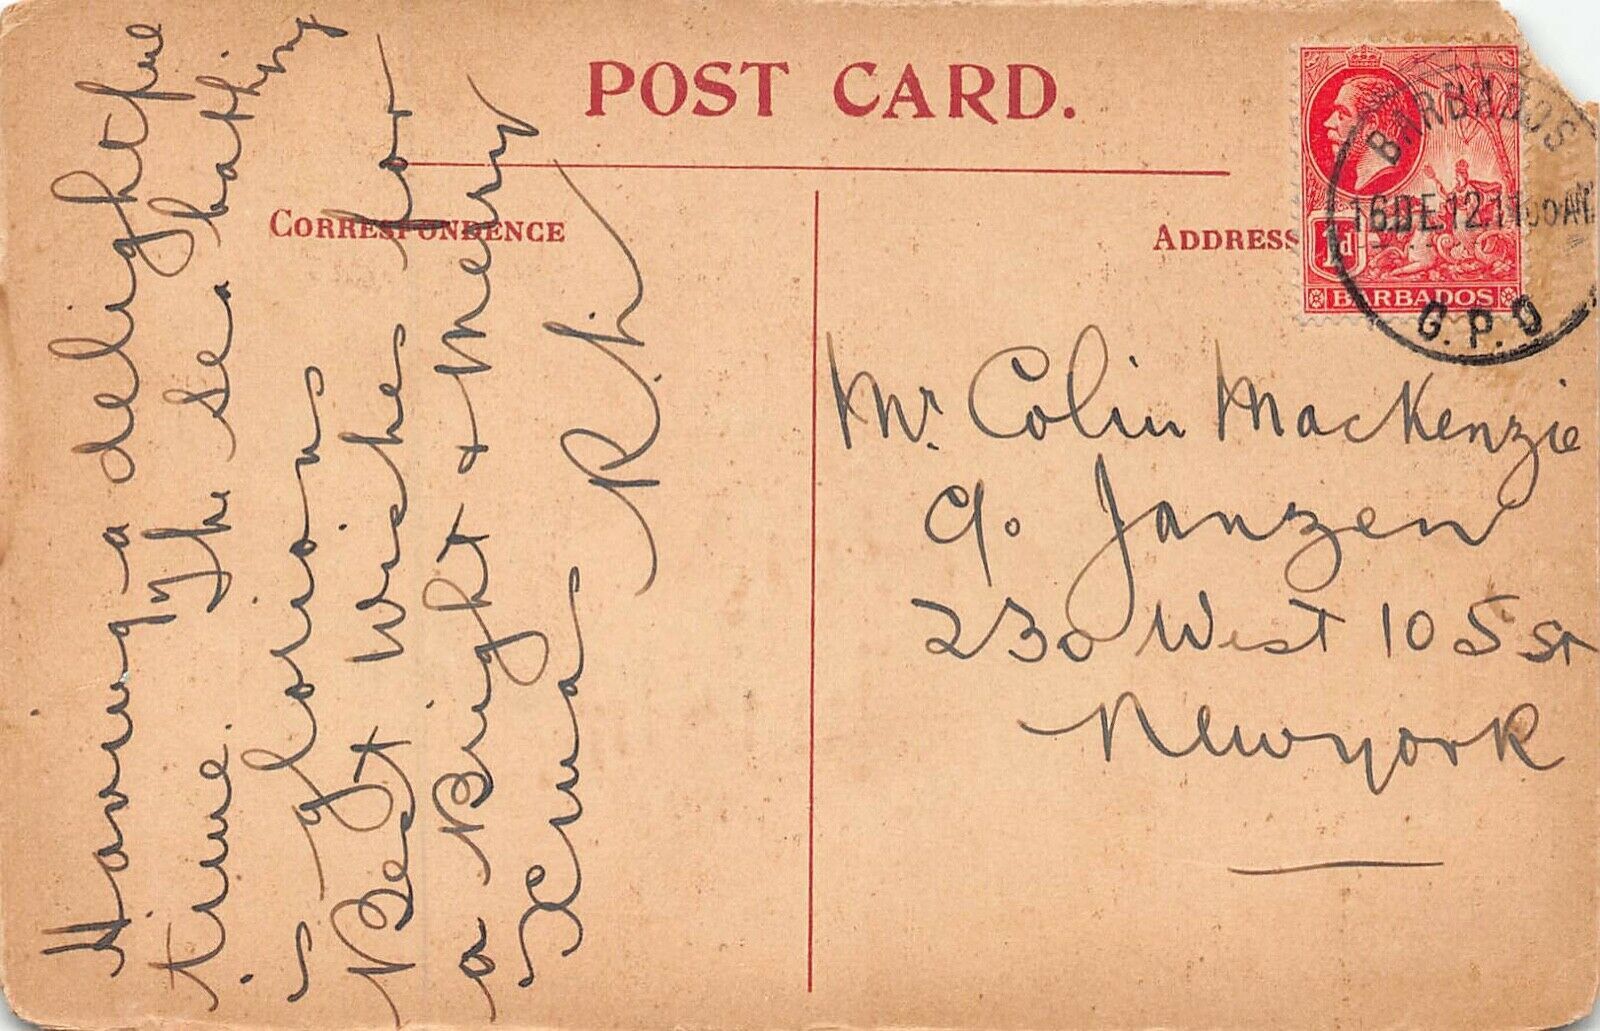 POST CARD.
CORRESPONDENCE
ADDRESS
BARBADOS
16 DE 12 11 00 AM
G.P.O
1d
BARBADOS
Having a delightful
time. The sea bathing
is glorious
Best Wishes for
a Bright & Merry
Xmas
Mr. Colin MacKenzie
c/o Janzen
230 West 105 St
New York